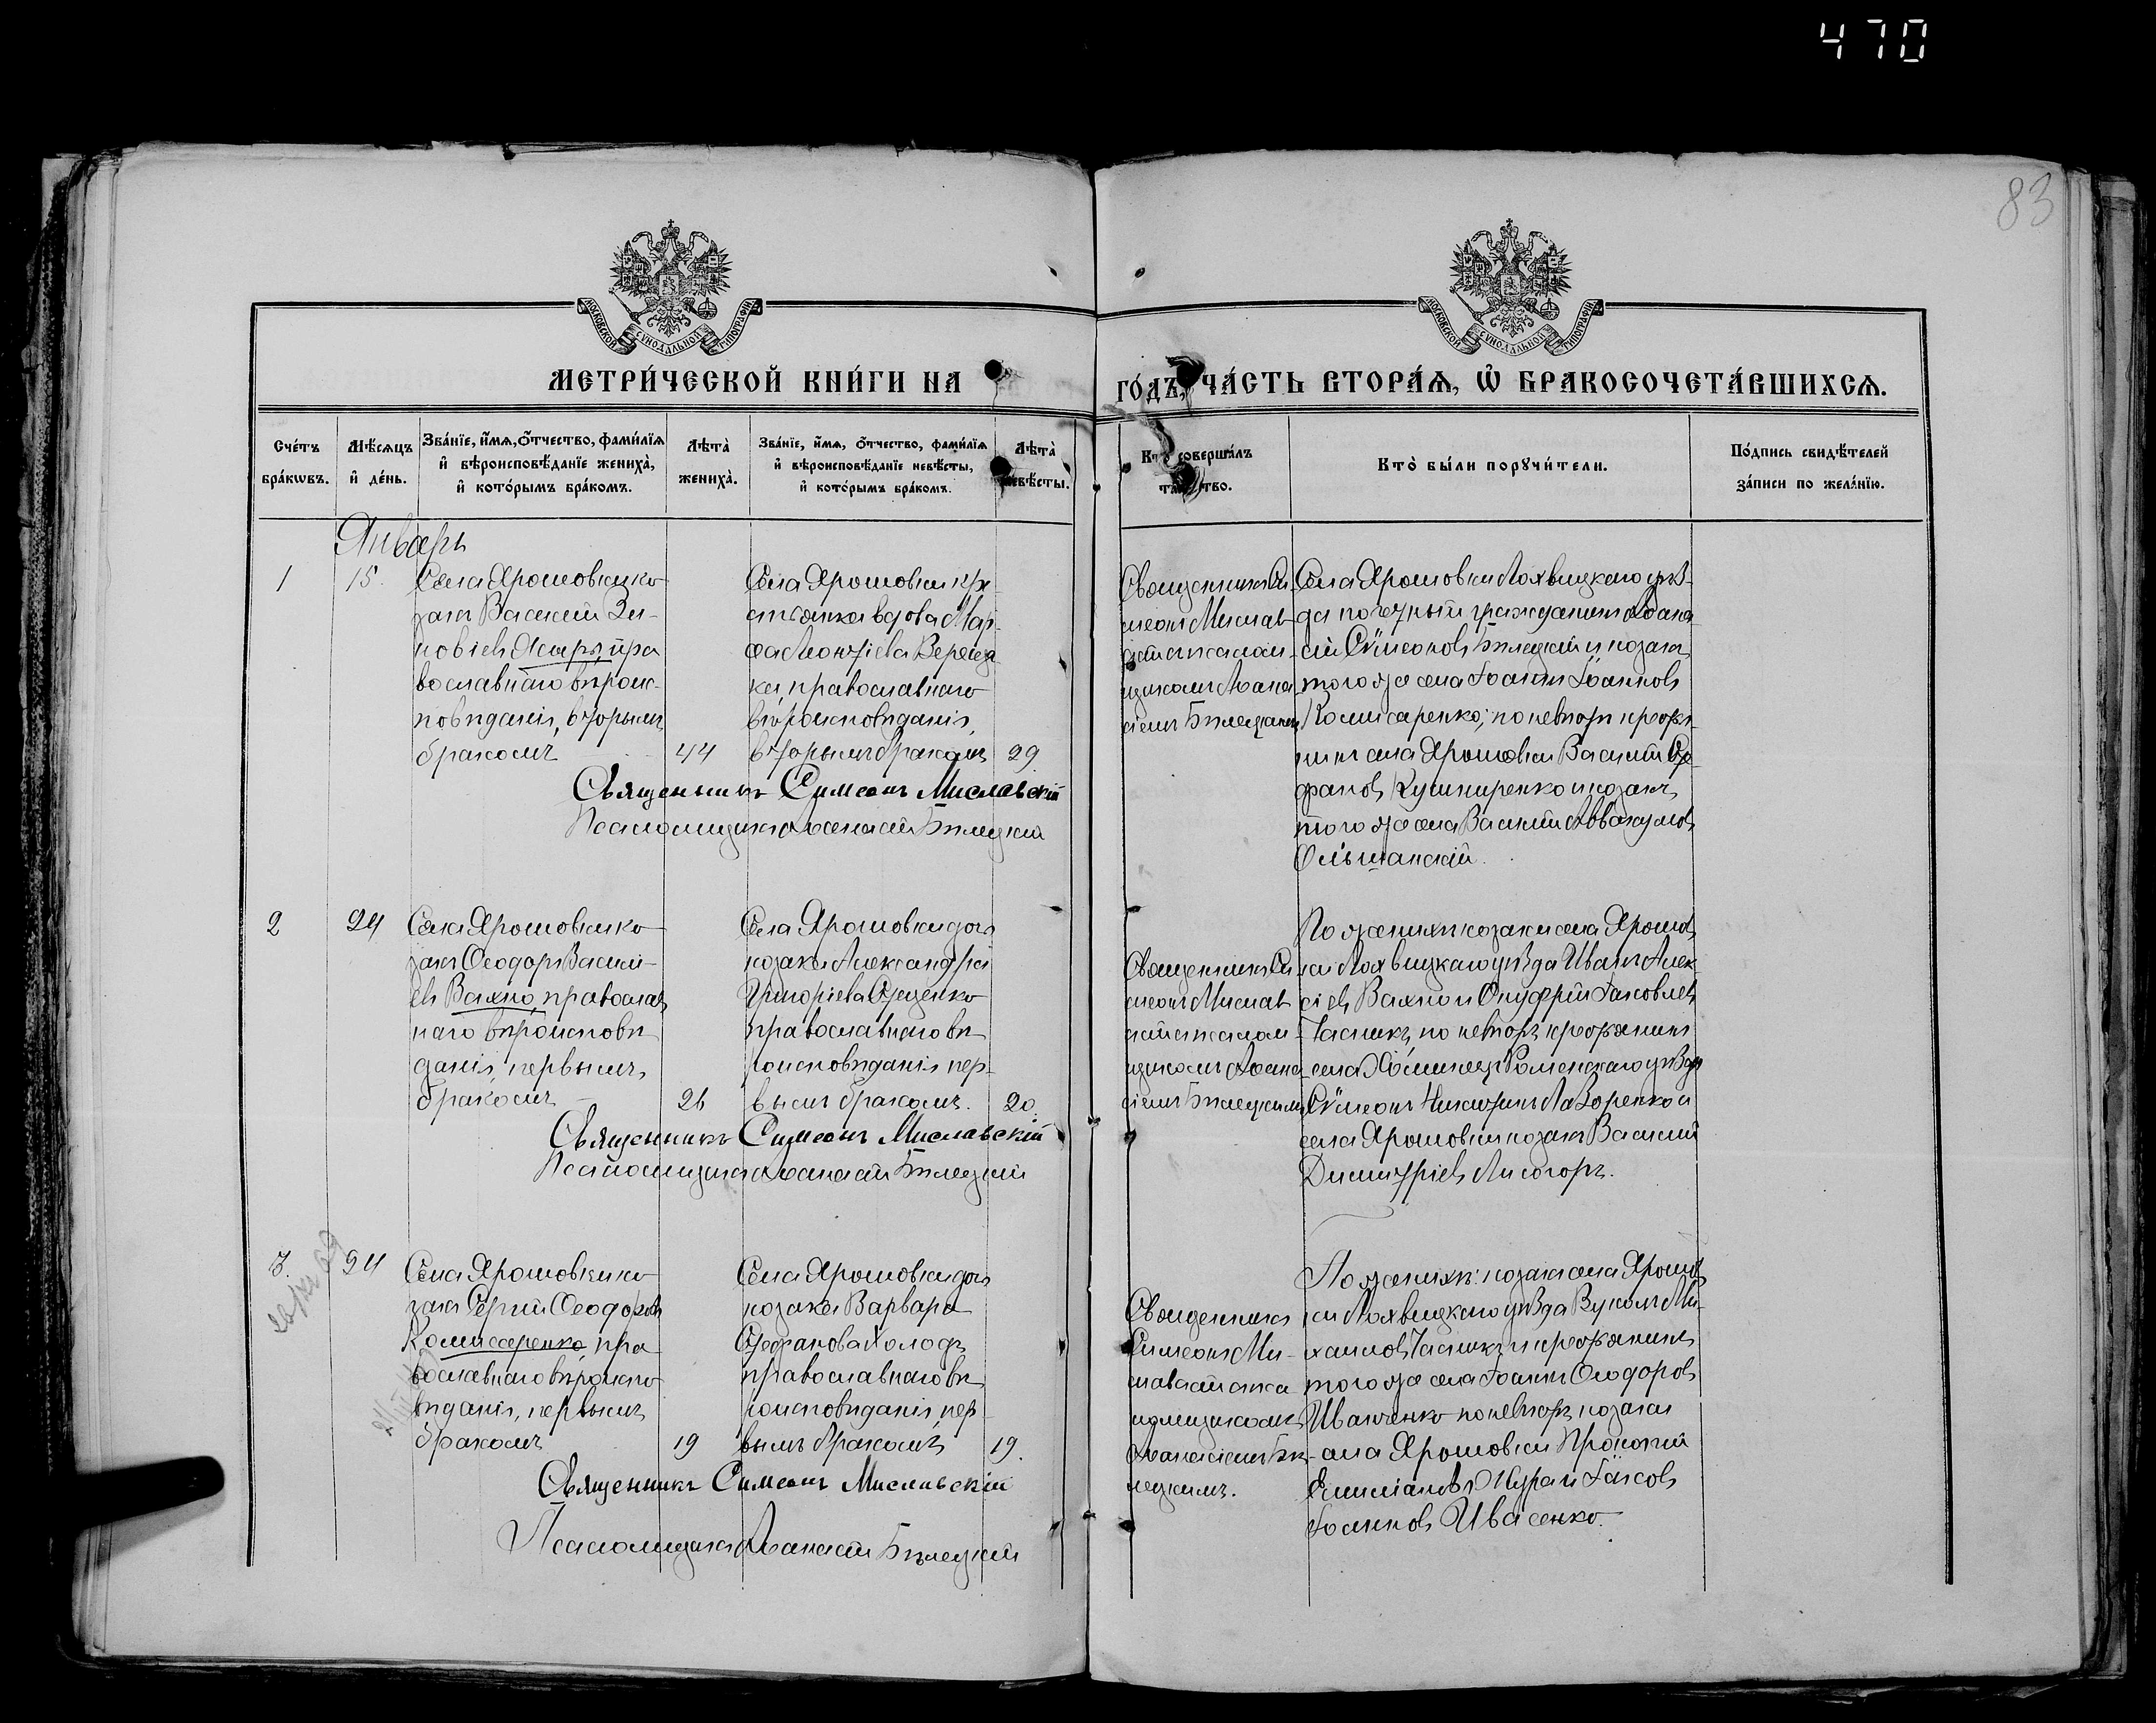 470
83
МОСКОВСКОЙ СѴНОДАЛЬНОЙ ТИПОГРАФІИ
МОСКОВСКОЙ СѴНОДАЛЬНОЙ ТИПОГРАФІИ
МЕТРИ́ЧЕСКОЙ КНИ́ГИ НА
ГО́ДЪ, ЧА́СТЬ ВТОРА́Ѧ, Ѡ҆ БРАКОСОЧЕТА́ВШИХСѦ.
Сче́тъ
бра́кѡвъ.
Мѣ́сѧцъ
и҆ де́нь.
Зва́нїе, и҆́мѧ, ѻ҆́тчество, фами́лїѧ
и҆ вѣроисповѣ́данїе жениха̀,
и҆ кото́рымъ бра́комъ.
Лѣта̀
жениха̀.
Зва́нїе, и҆́мѧ, ѻ҆́тчество, фами́лїѧ
и҆ вѣроисповѣ́данїе невѣ́сты,
и҆ кото́рымъ бра́комъ.
Лѣта̀
невѣ́сты.
совершáлъ
Кто̀ бы́ли порꙋчи́тели.
По́дпись свидѣ́телей
за́писи по жела́нїю.
Январь
1
15.
Села Ярошовки ко-
закъ Василий Зи-
новіевъ , пра
вославнаго вѣроис-
повѣданія, вторымъ
бракомъ
44
Села Ярошовки кре
стьянка вдова Мар-
фа Леонтіева
православнаго
вѣроисповѣданія,
вторымъ бракомъ
29
Священникъ Си-
меонъ Мислав-
скій съ псалом-
щикомъ Афана-
сіемъ Бѣлецкимъ
Села Ярошовки Лохвицкаго уѣз-
да почетный гражданинъ Афана
сій Сѵмеоновъ Бѣлецкій и козакъ
того же села Іоаннъ Іоанновъ
Комисаренко; по невѣстѣ крестья-
нинъ села Ярошовки Василий Сте-
фановъ Кушниренко и козакъ
того же села Василий Аввакумовъ
Ольшанскій.
Священникъ Симеонъ Миславскій
Псаломщикъ Афанасій Бѣлецкій
2
24
Села Ярошовки ко-
закъ Ѳеодоръ Васильи-
евъ Вахно, православ
наго вѣроисповѣ
данія, первымъ
бракомъ
26
Села Ярошовки дочь
козака Александра
Григоріева Стеценко
православнаго вѣ
роисповѣданія, пер-
вымъ бракомъ.
20.
Священникъ Си-
меонъ Мислав
скій съ псалом-
щикомъ Афана-
сіемъ Бѣлецкимъ
По женихѣ козаки села Ярошов
ки Лохвицкаго уѣзда Иванъ Алек-
сіевъ Вахно и Онуфрій Іаковлевъ
Часникъ, по невѣстѣ крестьянинъ
села Хоминецъ Роменскаго уѣзда
Сѵмеонъ Никитинъ Лазоренко и
села Ярошовки козакъ Василий
Димитріевъ Лисогоръ.
Священникъ Симеонъ Миславскій
Псаломщикъ Афанасій Бѣлецкій
3.
24
Села Ярошовки ко-
закъ Сергій Ѳеодоровъ
Комиссаренко, пра
вославнаго вѣроиспо
вѣданія, первымъ
бракомъ
19
Села Ярошовки дочь
козака Варвара
Стефанова Холодъ
православнаго вѣ
роисповѣданія, пер-
вымъ бракомъ,
19.
Священникъ
Симеонъ Ми-
славскій съ пса
ломщикомъ
Афанасіемъ Бѣ-
лецкимъ.
По женихѣ: козакъ села Ярошов
ки Лохвицкаго уѣзда Вуколъ Ми-
хаиловъ Часникъ и крестьянинъ
того же села Іоаннъ Ѳеодоровъ
Иванченко по невѣстѣ козаки
села Ярошовки Прокопій
Емиліановъ Жура и Іаковъ
Іоанновъ Ивасенко.
Священникъ Симеонъ Миславскій
Псаломщикъ Афанасій Бѣлецкій